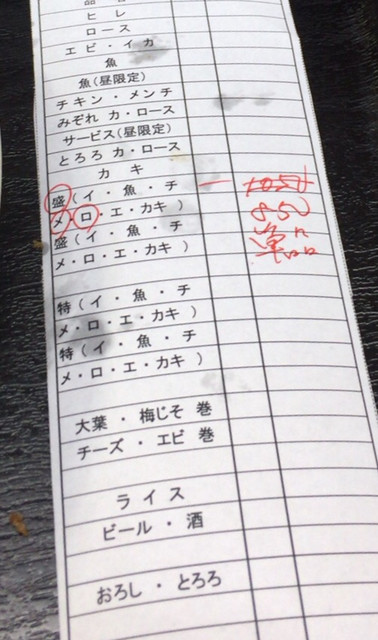 品 名
ヒレ
ロース
エビ・イカ
魚
魚(昼限定)
チキン・メンチ
みぞれ カ・ロース
サービス(昼限定)
とろろ カ・ロース
カキ
盛(イ・魚・チ 一
メ・ロ・エ・カキ) 850
盛(イ・魚・チ 単品
メ・ロ・エ・カキ)
特(イ・魚・チ
メ・ロ・エ・カキ)
特(イ・魚・チ
メ・ロ・エ・カキ)
大葉・梅じそ 巻
チーズ・エビ 巻
ライス
ビール・酒
おろし・とろろ